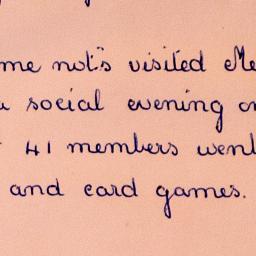 me not's visited Me
social evening on
41 members went
and card games.